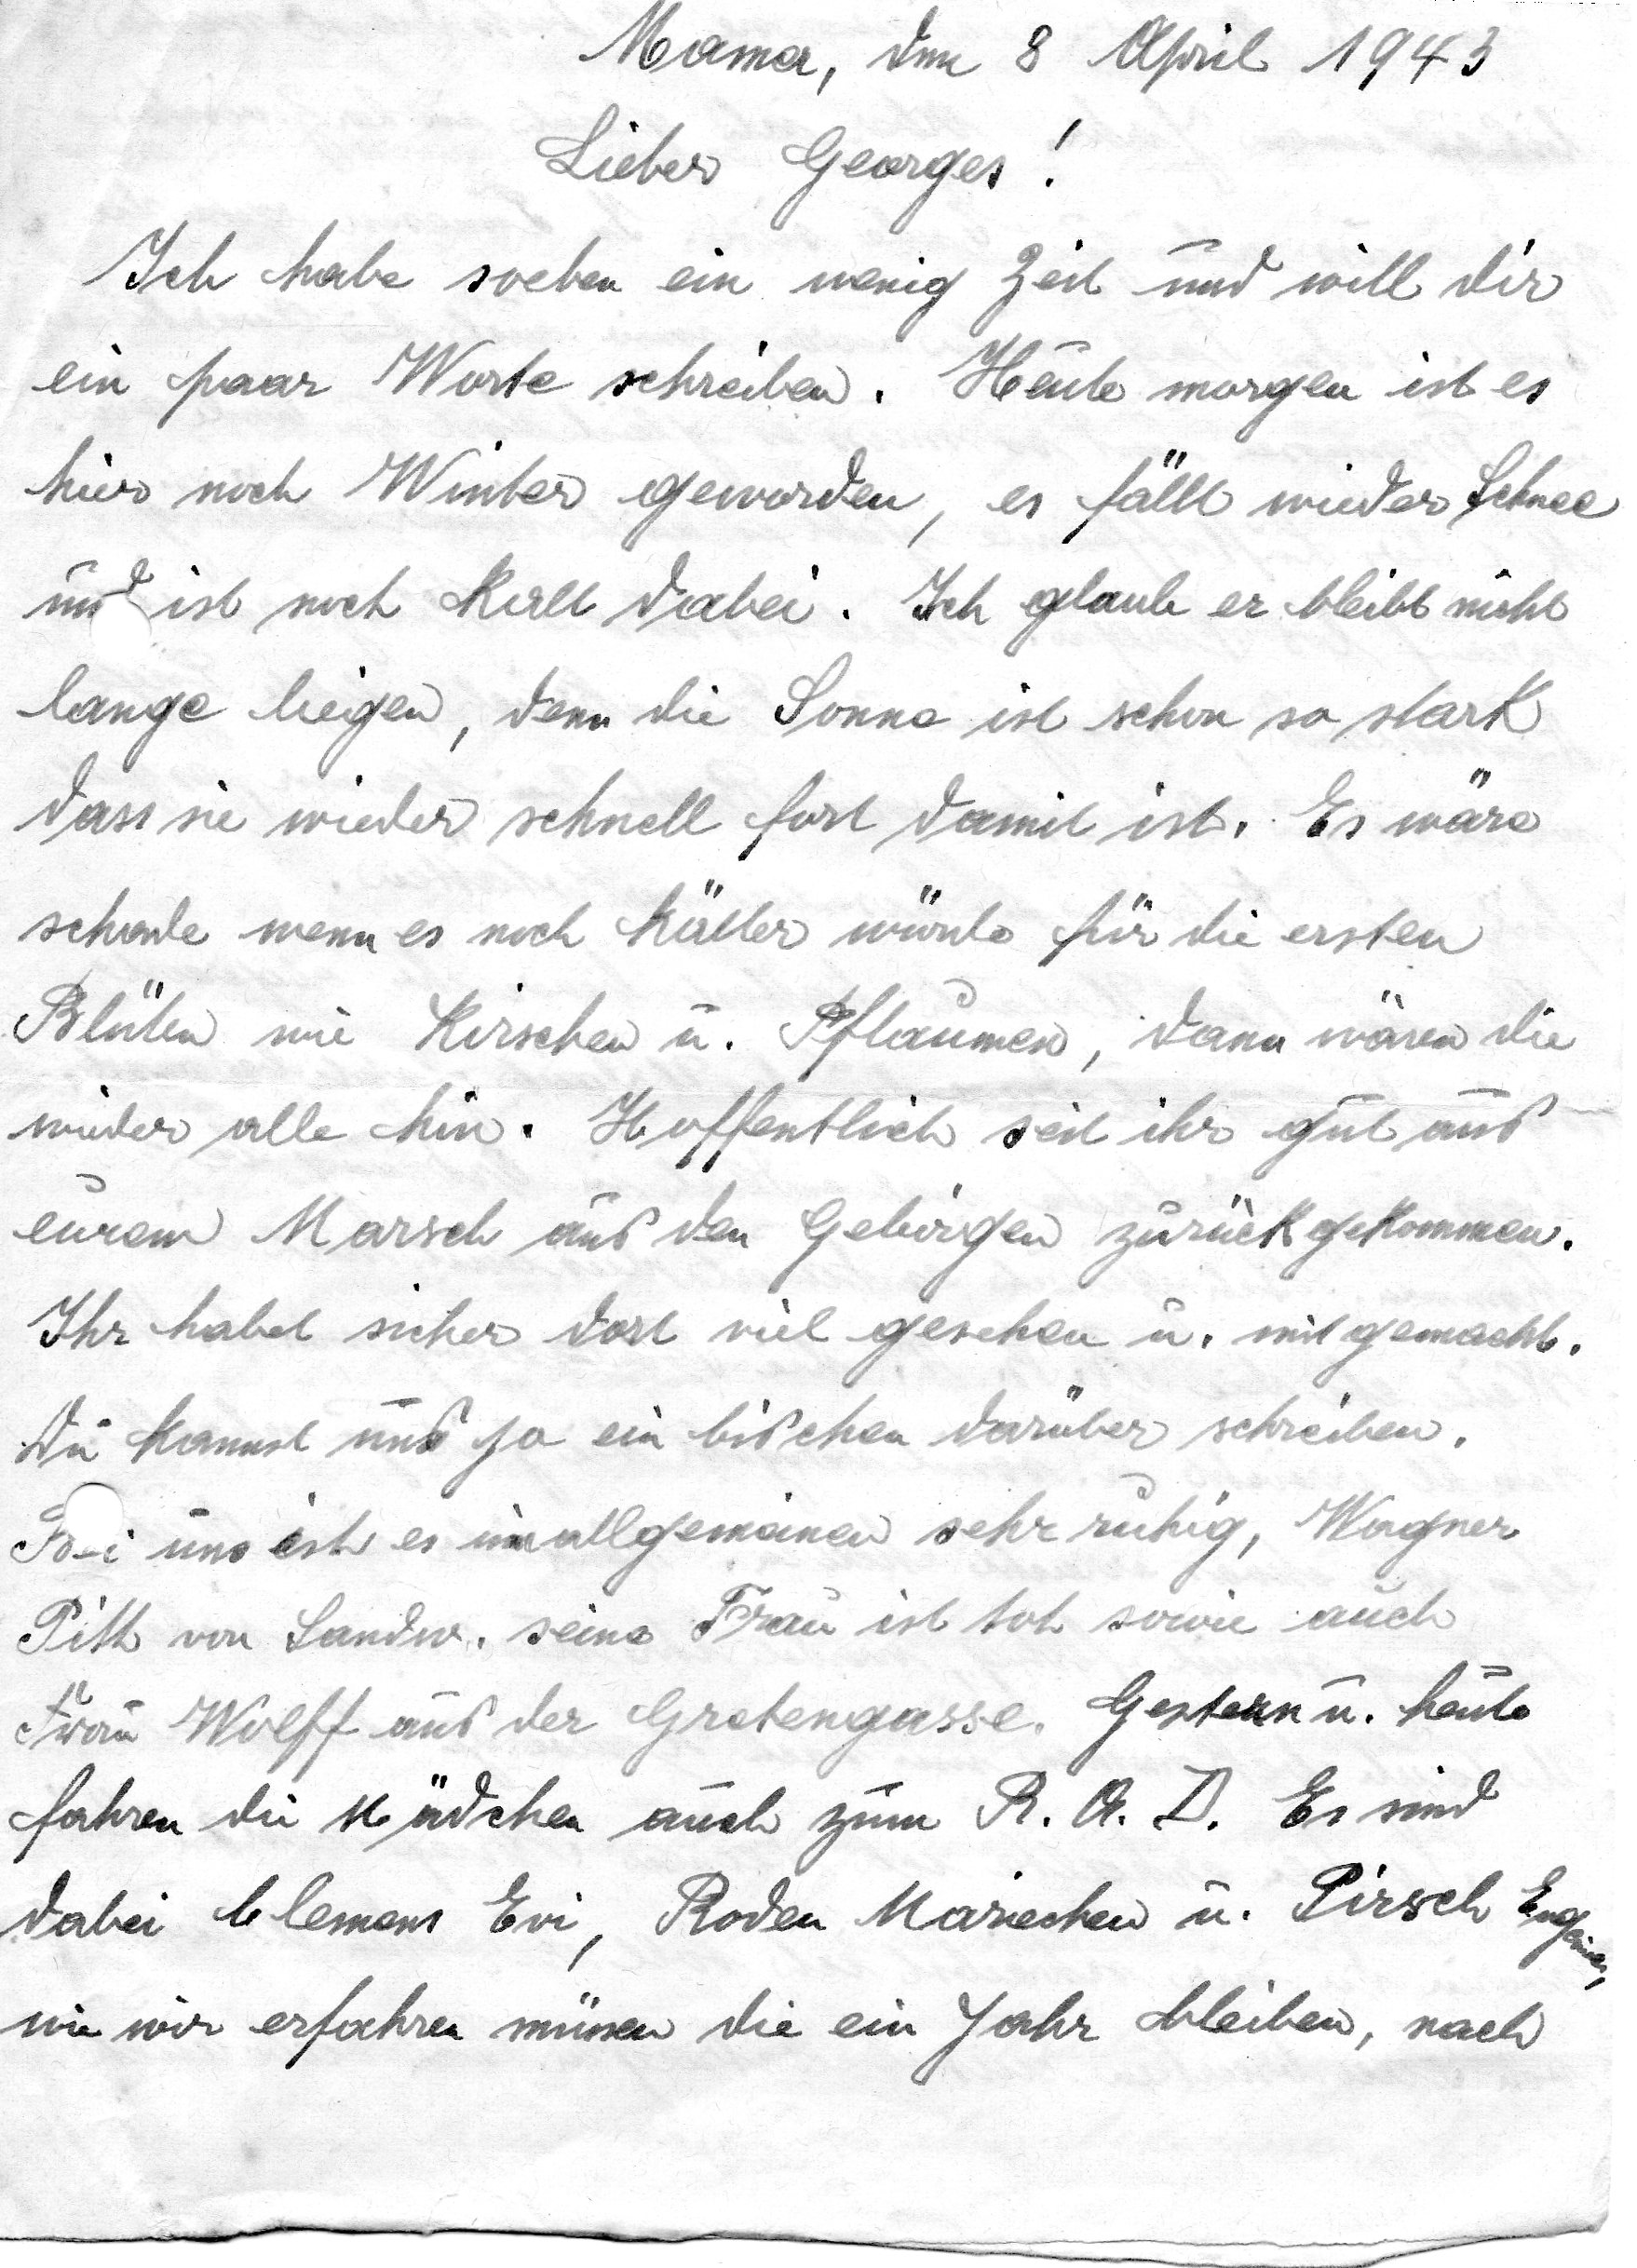 Mamer, den 8 April 1943
Lieber Georges!
Ich habe soeben ein wenig Zeit und will dir
ein paar Worte schreiben. Heute morgen ist es
hier noch Winter geworden, es fällt wieder Schnee
und ist noch kalt dabei. Ich glaube er bleibt nicht
lange liegen, denn die Sonne ist schon so stark
dass sie wieder schnell fort damit ist. Es wäre
schade wenn es noch kälter würde für die ersten
Blüten wie Kirschen u. Pflaumen, dann wären die
wieder alle hin. Hoffentlich seit ihr gut aus
eurem Marsch aus den Gebirgen zurückgekommen.
Ihr habet sicher dort viel gesehen u. mitgemacht.
Du kannst uns ja ein bischen darüber schreiben.
Bei uns ist es im allgemeinen sehr ruhig, Wagner
Pitt von Landw. seine Frau ist tot sowie auch
Frau Wolff aus der Gretengasse. Gestern u. heute
fahren die Mädchen auch zum R. A. D. Es sind
dabei Clemens Evi, Roden Mariechen u. Pirsch
wie wir erfahren müssen die ein Jahr bleiben, nach